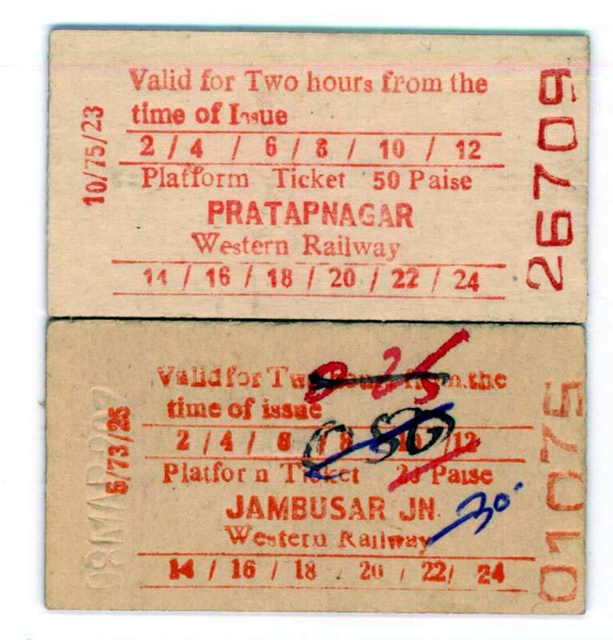 Valid for Two hours from the
time of Issue
2 / 4 / 6 / 8 / 10 / 12
Platform Ticket 50 Paise
PRATAPNAGAR
Western Railway
14 / 16 / 18 / 20 / 22 / 24
10/75/23
26709
0 25
Valid for Two hours from the
time of issue
080
2 / 4 / 6 / 8 / 10 / 12
Platfor n Ticket Paise
JAMBUSAR JN
30
Western Railway
14 / 16 / 18 20 / 22/ 24
5/73/25
01075